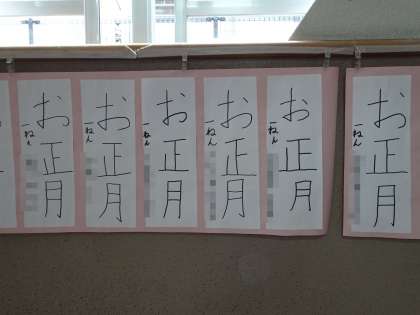 お正月
一ねん
お正月
一ねん
お正月
一ねん
お正月
一ねん
お正月
一ねん
お正月
一ねん